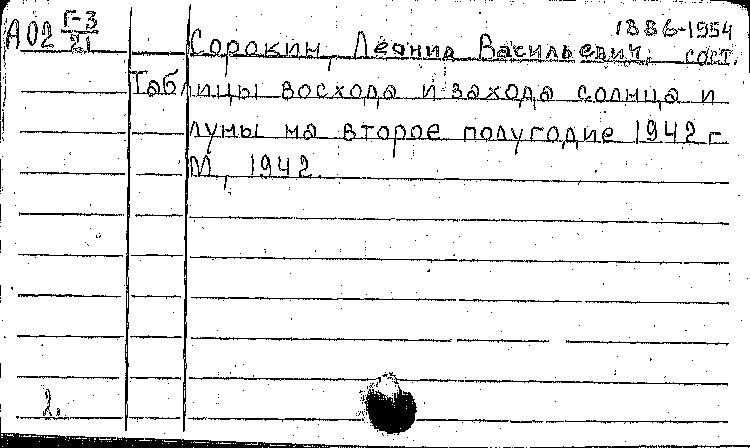 1886-1954
А02 Г-3/21 Сорокин, Леонид Васильевич, сост.
Таблицы восхода и захода солнца и
луны на второе полугодие 1942 г
М, 1942.
2.